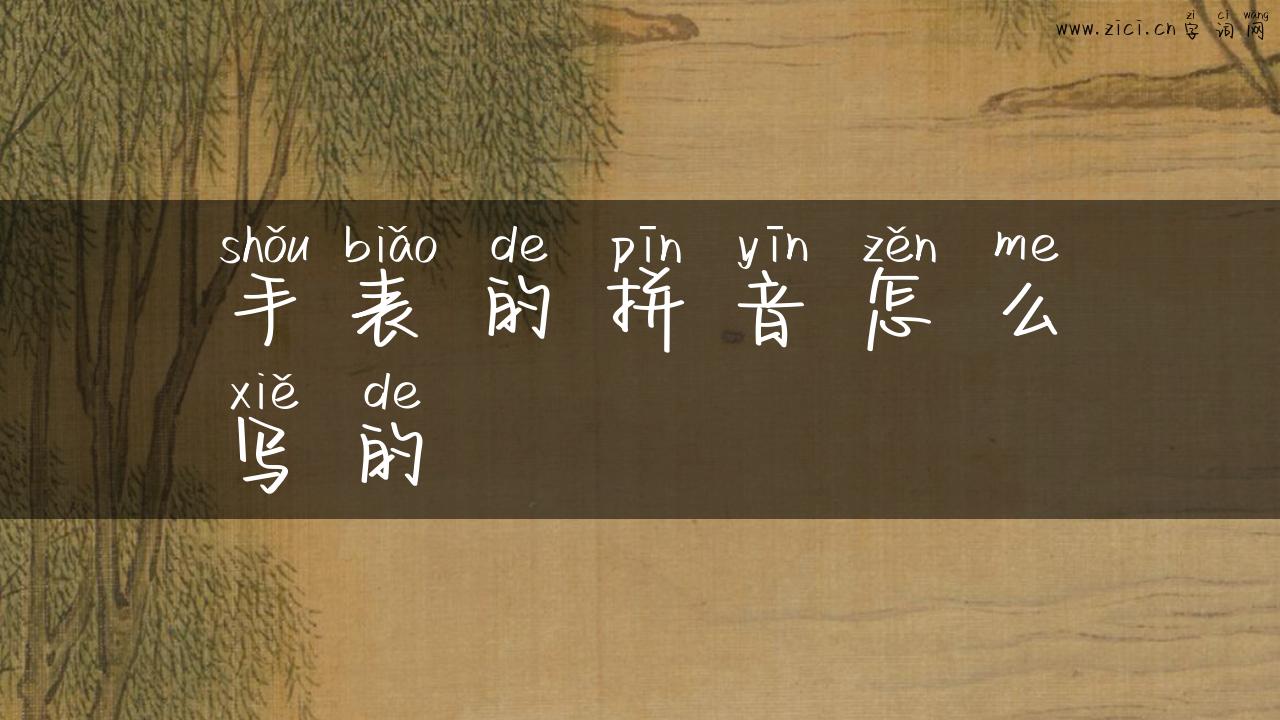 zì cí wǎng
www.zici.cn 字词网
shǒu biǎo de pīn yīn zěn me
手表的拼音怎么
xiě de
写的